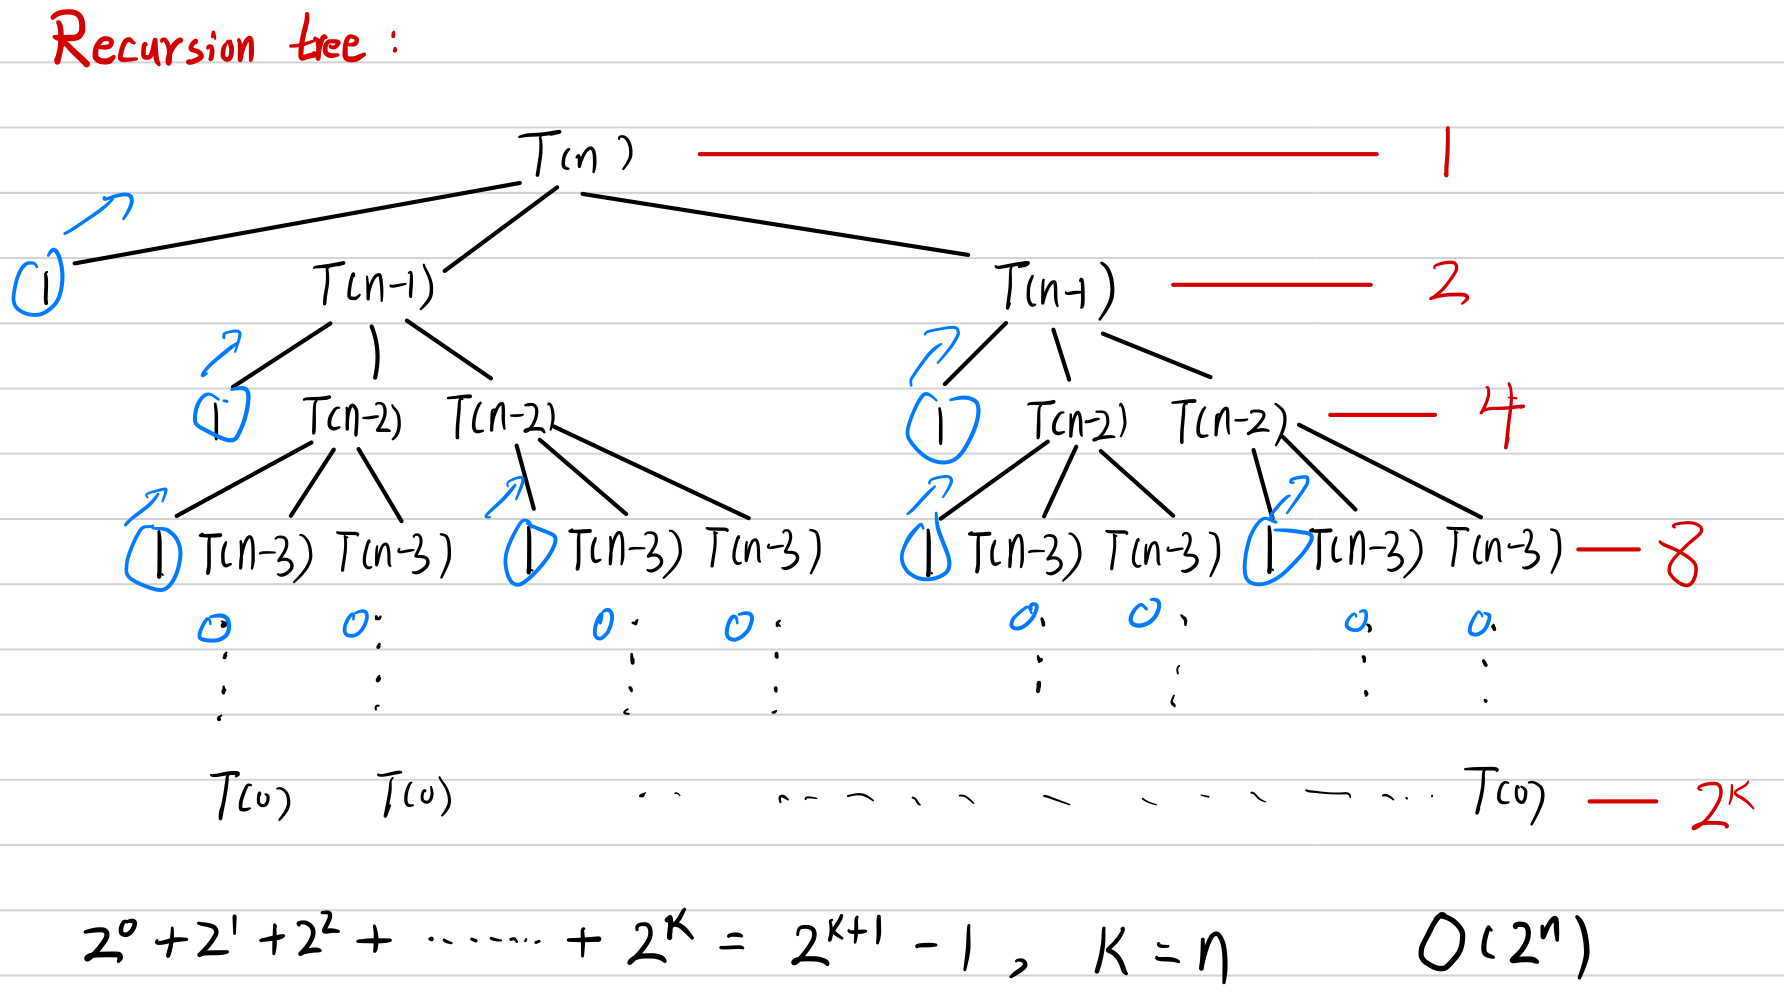 Recursion tree :
T(n) 1
1 T(n-1) T(n-1) 2
1 T(n-2) T(n-2) 1 T(n-2) T(n-2) 4
1 T(n-3) T(n-3) 1 T(n-3) T(n-3) 1 T(n-3) T(n-3) 1 T(n-3) T(n-3) 8
0 0 0 0 0 0 0 0
T(0) T(0) T(0) 2ᴷ
2⁰ + 2¹ + 2² + ······· + 2ᴷ = 2ᴷ⁺¹ - 1 , K = n O(2ⁿ)